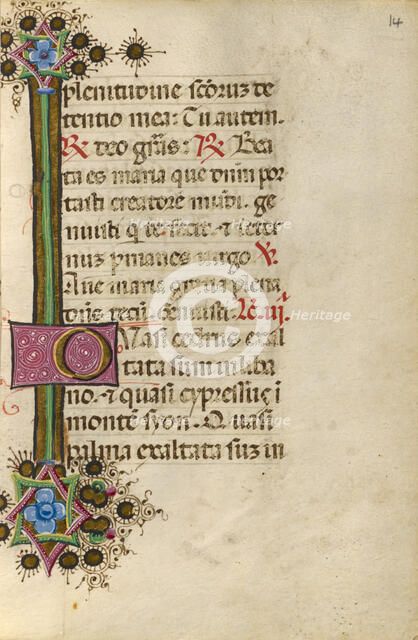 14
plenitudine scōruz de
tentio mea: Tu autem.
℟ deo grās: ℟ Bea
ta es maria que dnm por
tasti creatorē mūdi. ge
nuisti q te fecit: et eter
nuz pmanes virgo ℣
Aue maria gratia plena
dns tecū: Genuisti. Lc̄. iij.
Quasi cedrus exal
tata sum in liba
no. et quasi cypressus i
monte syon. Quasi
palma exaltata suz in
Heritage
Heritage